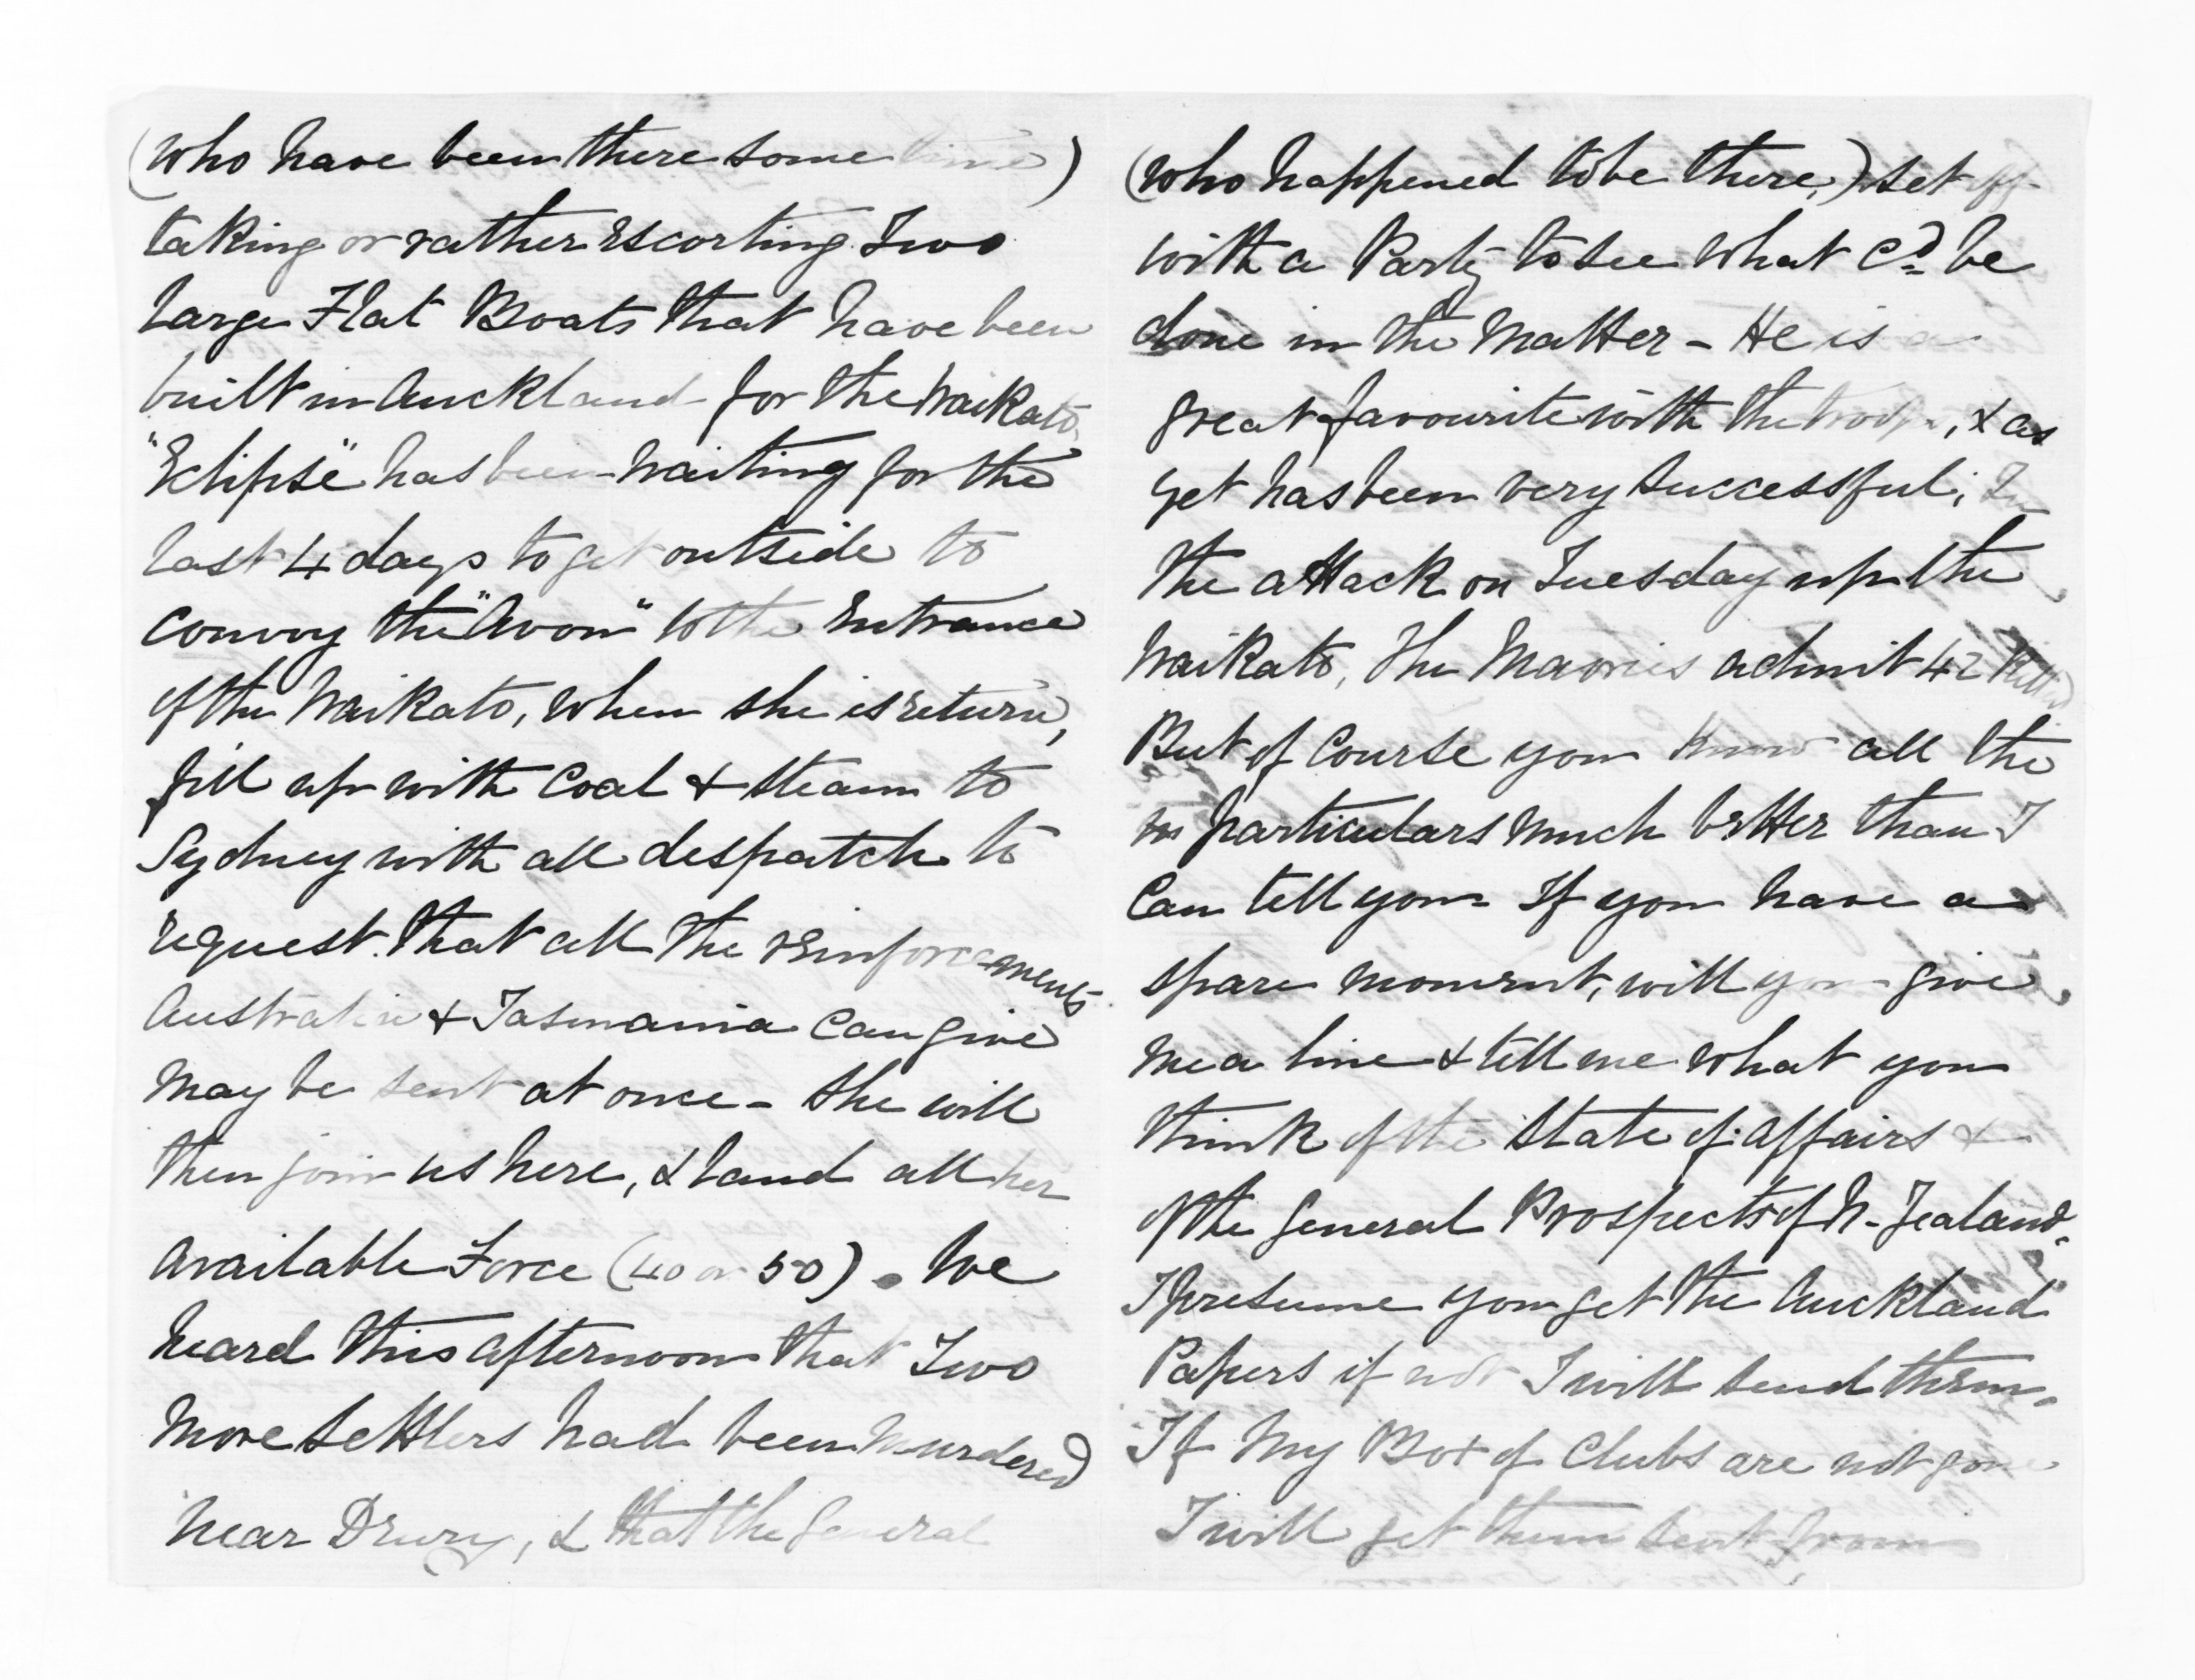 (who have been there some time)
taking or rather escorting Two
large Flat Boats that have been
built in Auckland for the Waikato,
"Eclipse" has been waiting for the
last 4 days to get outside to
convoy the "Avon" to the Entrance
of the Waikato, when she is return,
fill up with Coal & steam to
Sydney with all despatch to
request that all the reinforcements
Australia & Tasmania can give
may be sent at once - She will
then join us here, & land all her
available Force (40 or 50). We
heard this afternoon that Two
more settlers had been murdered
near Drury, & that the General
(who happened to be there,) set off
with a Party to see what cd. be
done in the matter - He is a
great favourite with the troops, & as
yet has been very successful; In
the attack on Tuesday up the
Waikato, The Maories admit 42 killed
But of course you know all the
particulars much better than I
can tell you. If you have a
spare moment, will you give
me a line & tell me what you
think of the state of affairs &
of the general Prospects of N. Zealand.
I presume you get the Auckland
Papers if not I will send them.
If my Box of Clubs are not gone
I will get them sent from